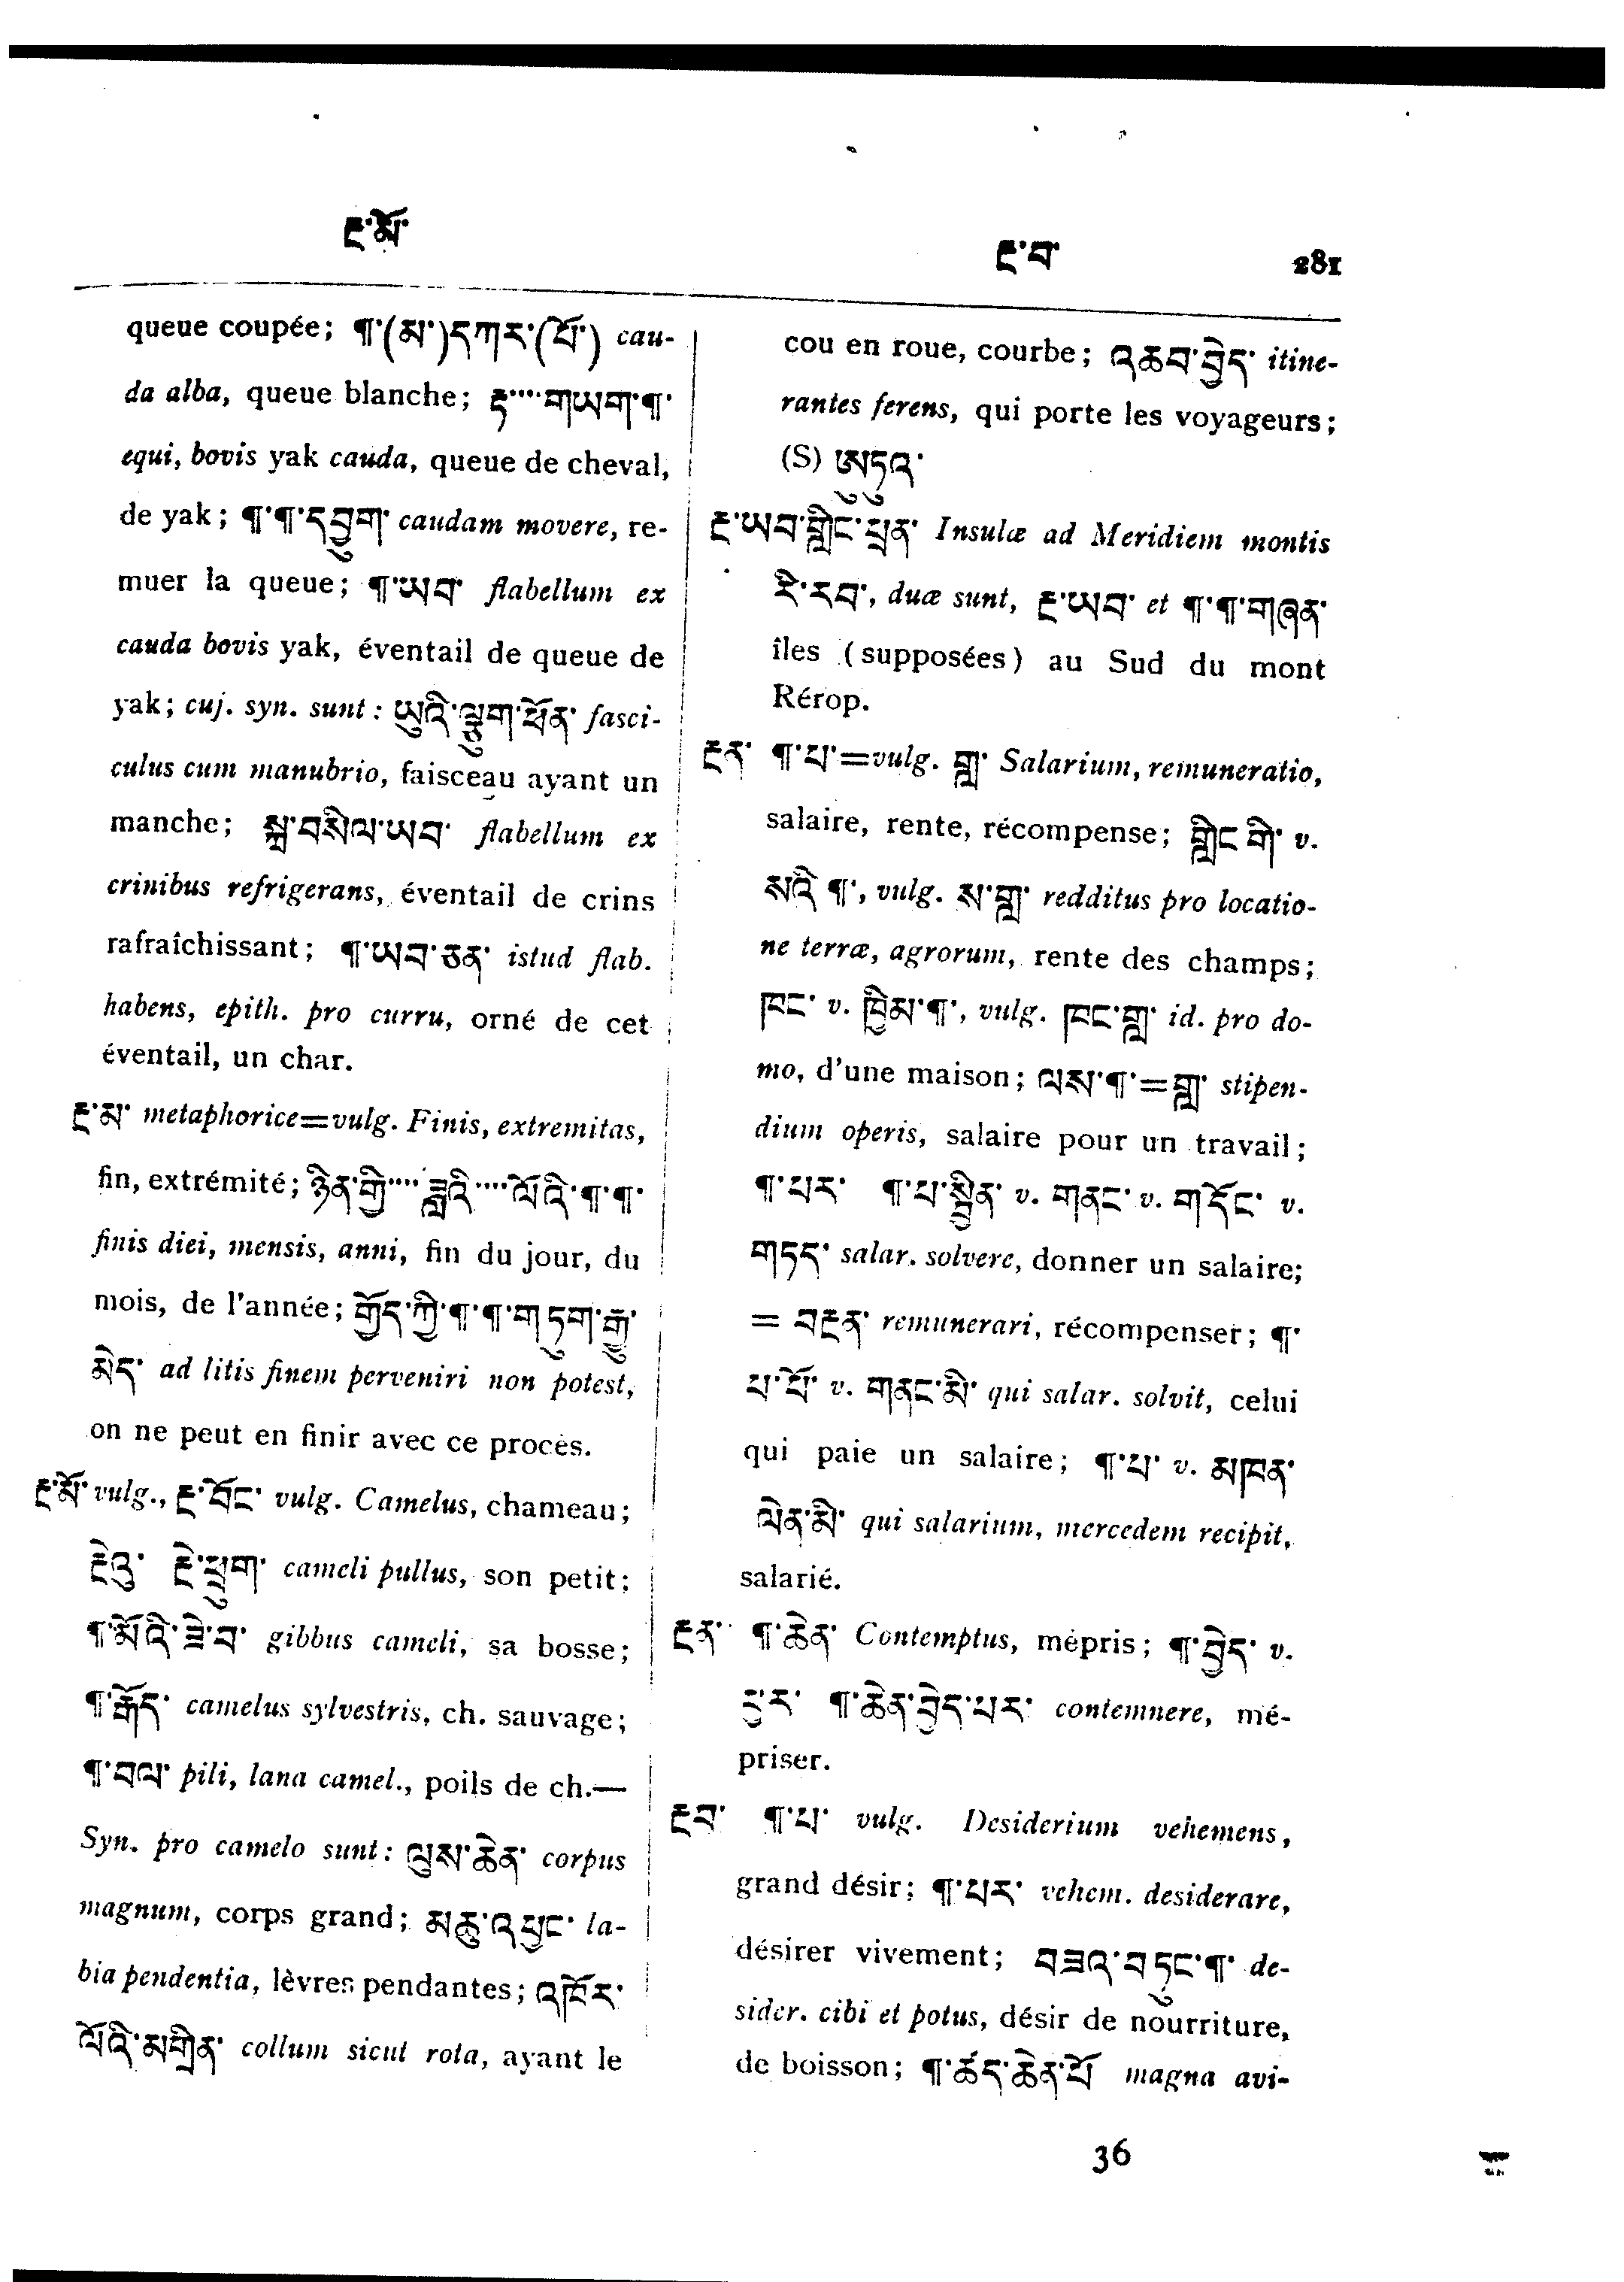 རྔ་མོ་
རྔ་བ་ 281
queue coupée; ¶་(མ་)དཀར་(པོ་) cau-
da alba, queue blanche; རྟ་····གཡག་¶་
equi, bovis yak cauda, queue de cheval,
de yak; ¶་¶་དབྱུག་ caudam movere, re-
muer la queue; ¶་ཡབ་ flabellum ex
cauda bovis yak, éventail de queue de
yak; cuj. syn. sunt: fasci-
culus cum manubrio, faisceau ayant un
manche; སྐྲ་བསིལ་ཡབ་ flabellum ex
crinibus refrigerans, éventail de crins
rafraîchissant; ¶་ཡབ་ཅན་ istud flab.
habens, epith. pro curru, orné de cet
éventail, un char.
རྔ་མ་ metaphorice=vulg. Finis, extremitas,
fin, extrémité; ཉིན་གྱི····ཟླའི····ལོའི་¶་¶་
finis diei, mensis, anni, fin du jour, du
mois, de l'année; གྱོད་ཀྱི་¶་¶་གཏུག་རྒྱུ་
མེད་ ad litis finem perveniri non potest,
on ne peut en finir avec ce procès.
རྔ་མོ་ vulg., རྔ་བོང་ vulg. Camelus, chameau;
རྔེའུ་ རྔེ་ཕྲུག་ cameli pullus, son petit;
¶་མོའི་ཟེ་བ་ gibbus cameli, sa bosse;
¶་རྒོད་ camelus sylvestris, ch. sauvage;
¶་བལ་ pili, lana camel., poils de ch.—
Syn. pro camelo sunt: ལུས་ཆེན་ corpus
magnum, corps grand; མཆུ་འཕྱང་ la-
bia pendentia, lèvres pendantes; འཁོར་
ལོའི་མགྲིན་ collum sicut rota, ayant le
cou en roue, courbe; འཆབ་བྱེད་ itine-
rantes ferens, qui porte les voyageurs;
(S) ཨུཏུའ་
རྔ་ཡབ་གླིང་ཕྲན་ Insulæ ad Meridiem montis
རི་རབ་, duæ sunt, རྔ་ཡབ་ et ¶་¶་གཞན་
îles (supposées) au Sud du mont
Rérop.
རྔན་ ¶་པ་=vulg. གླ་ Salarium, remuneratio,
salaire, rente, récompense; གླིང་གི་ v.
སའི་¶་, vulg. ས་གླ་ redditus pro locatio-
ne terræ, agrorum, rente des champs;
ཁང་ v. ཁྱིམ་¶་, vulg. ཁང་གླ་ id. pro do-
mo, d'une maison; ལས་¶་=གླ་ stipen-
dium operis, salaire pour un travail;
¶་པར་ ¶་པ་སྦྱིན་ v. གནང་ v. གདོང་ v.
གཏད་ salar. solvere, donner un salaire;
= བརྔན་ remunerari, récompenser; ¶་
པ་པོ་ v. གནང་མི་ qui salar. solvit, celui
qui paie un salaire; ¶་པ་ v. མཁན་
ལེན་མི་ qui salarium, mercedem recipit,
salarié.
རྔན་ ¶་ཆེན་ Contemptus, mépris; ¶་བྱེད་ v.
¶་ཆེན་བྱེད་པར་ contemnere, mé-
priser.
རྔབ་ ¶་པ་ vulg. Desiderium vehemens,
grand désir; ¶་པར་ vehem. desiderare,
désirer vivement; བཟའ་བཏུང་¶་ de-
sider. cibi et potus, désir de nourriture,
de boisson; ¶་ཚད་ཆེན་པོ་ magna avi-
36